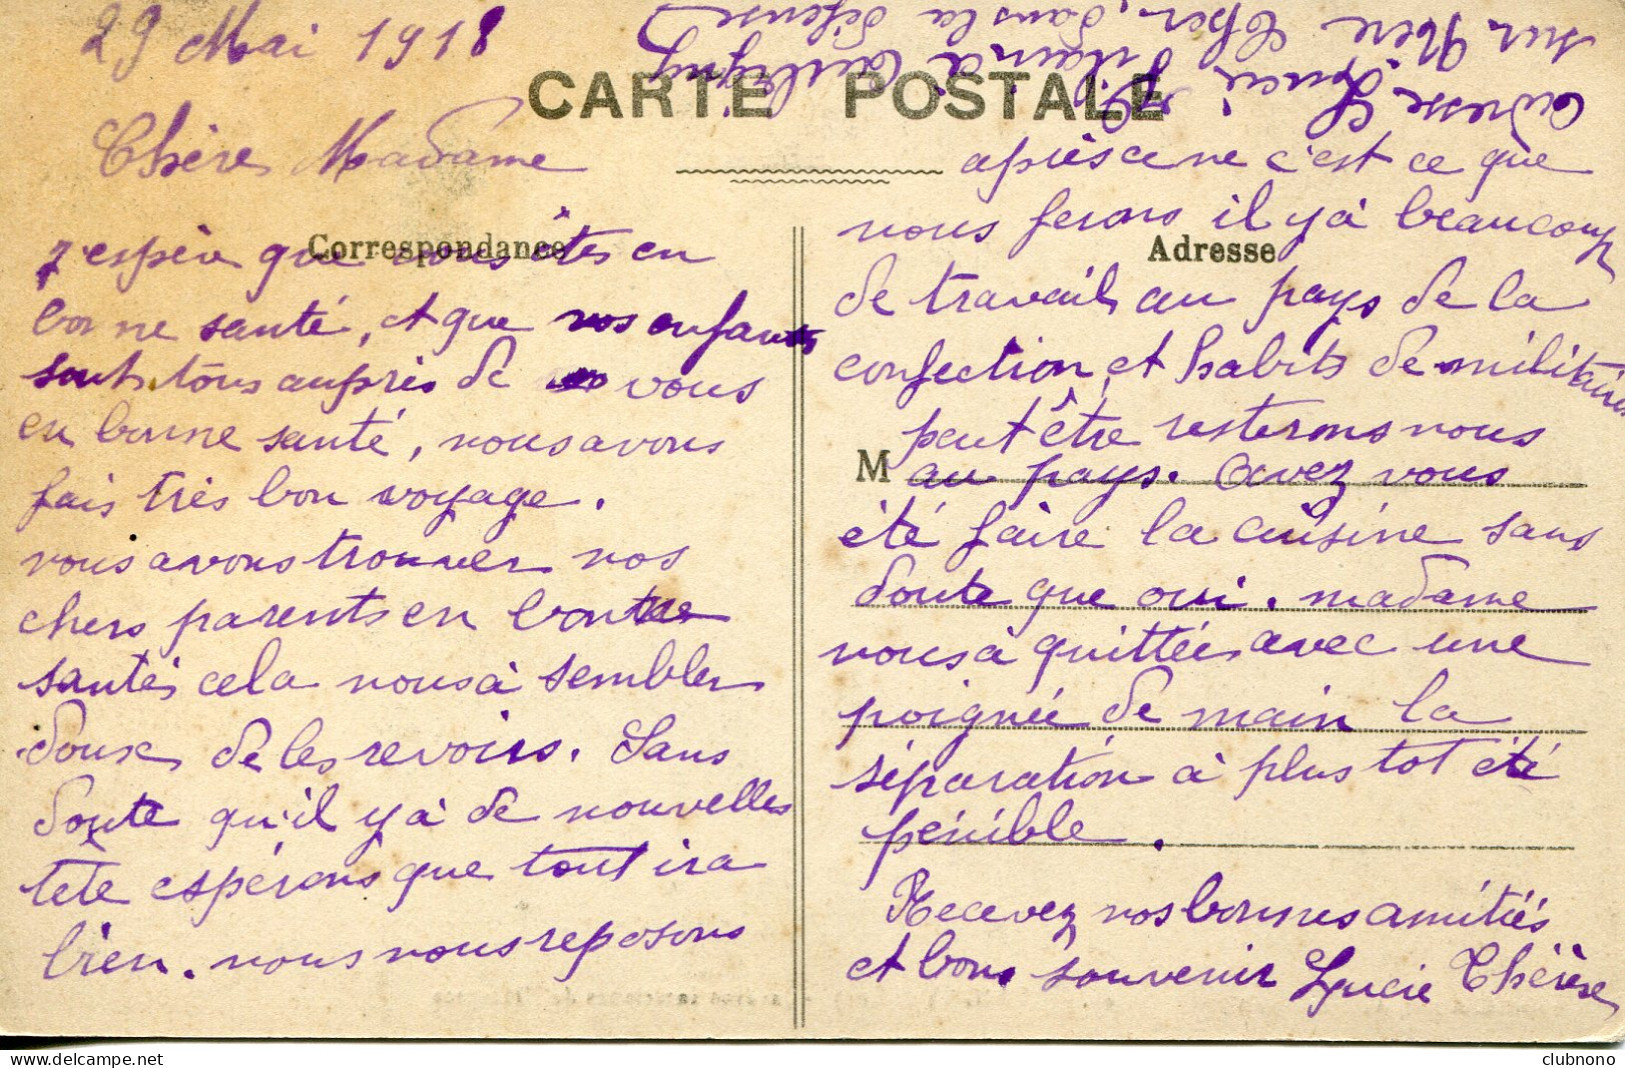 29 Mai 1918
CARTE POSTALE
Chère Madame
Correspondance
j'espère que vous êtes en
bonne santé, et que vos enfants
sont tous auprès de vous
en bonne santé, nous avons
fais très bon voyage.
nous avons trouver nos
chers parents en bonne
santés cela nous à sembler
doux de les revoirs. Sans
doute qu'il y à de nouvelles
tête espérons que tout ira
bien. nous nous reposons
après ce ne c'est ce que
nous ferons il y à beaucoup
Adresse
de travail au pays de la
confection et habits de militaires
peut être resterons nous
M
au pays. Avez vous
été faire la cuisine sans
doute que oui. madame
nous à quittée avec une
poignée de main la
séparation à plus tot été
pénible.
Recevez nos bonnes amitiés
et bons souvenir Lucie Thérèse
adresse Lucie
à Aubigny
sur Nère Cher, dans la défense
clubnono